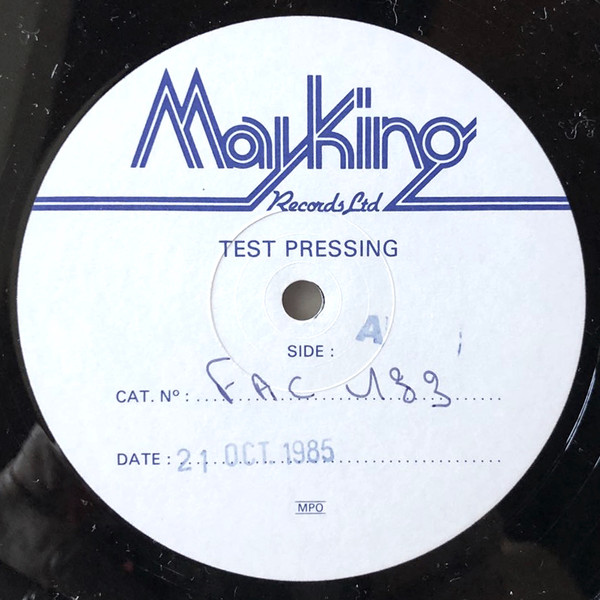 Mayking
Records Ltd
TEST PRESSING
SIDE : A
CAT. Nº : FAC 133
DATE : 21 OCT. 1985
MPO